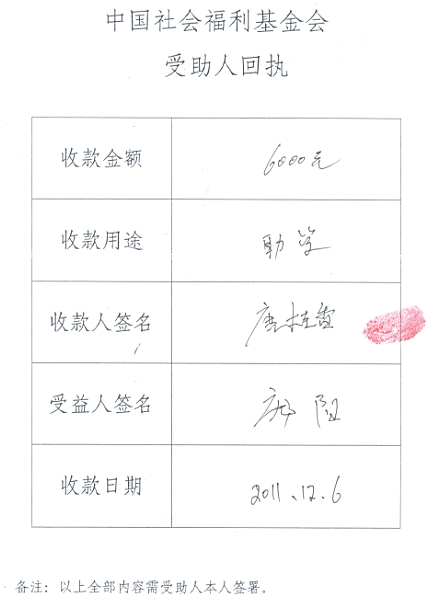 中国社会福利基金会
受助人回执
收款金额 6000元
收款用途 助学
收款人签名
受益人签名
收款日期 2011.12.6
备注：以上全部内容需受助人本人签署。